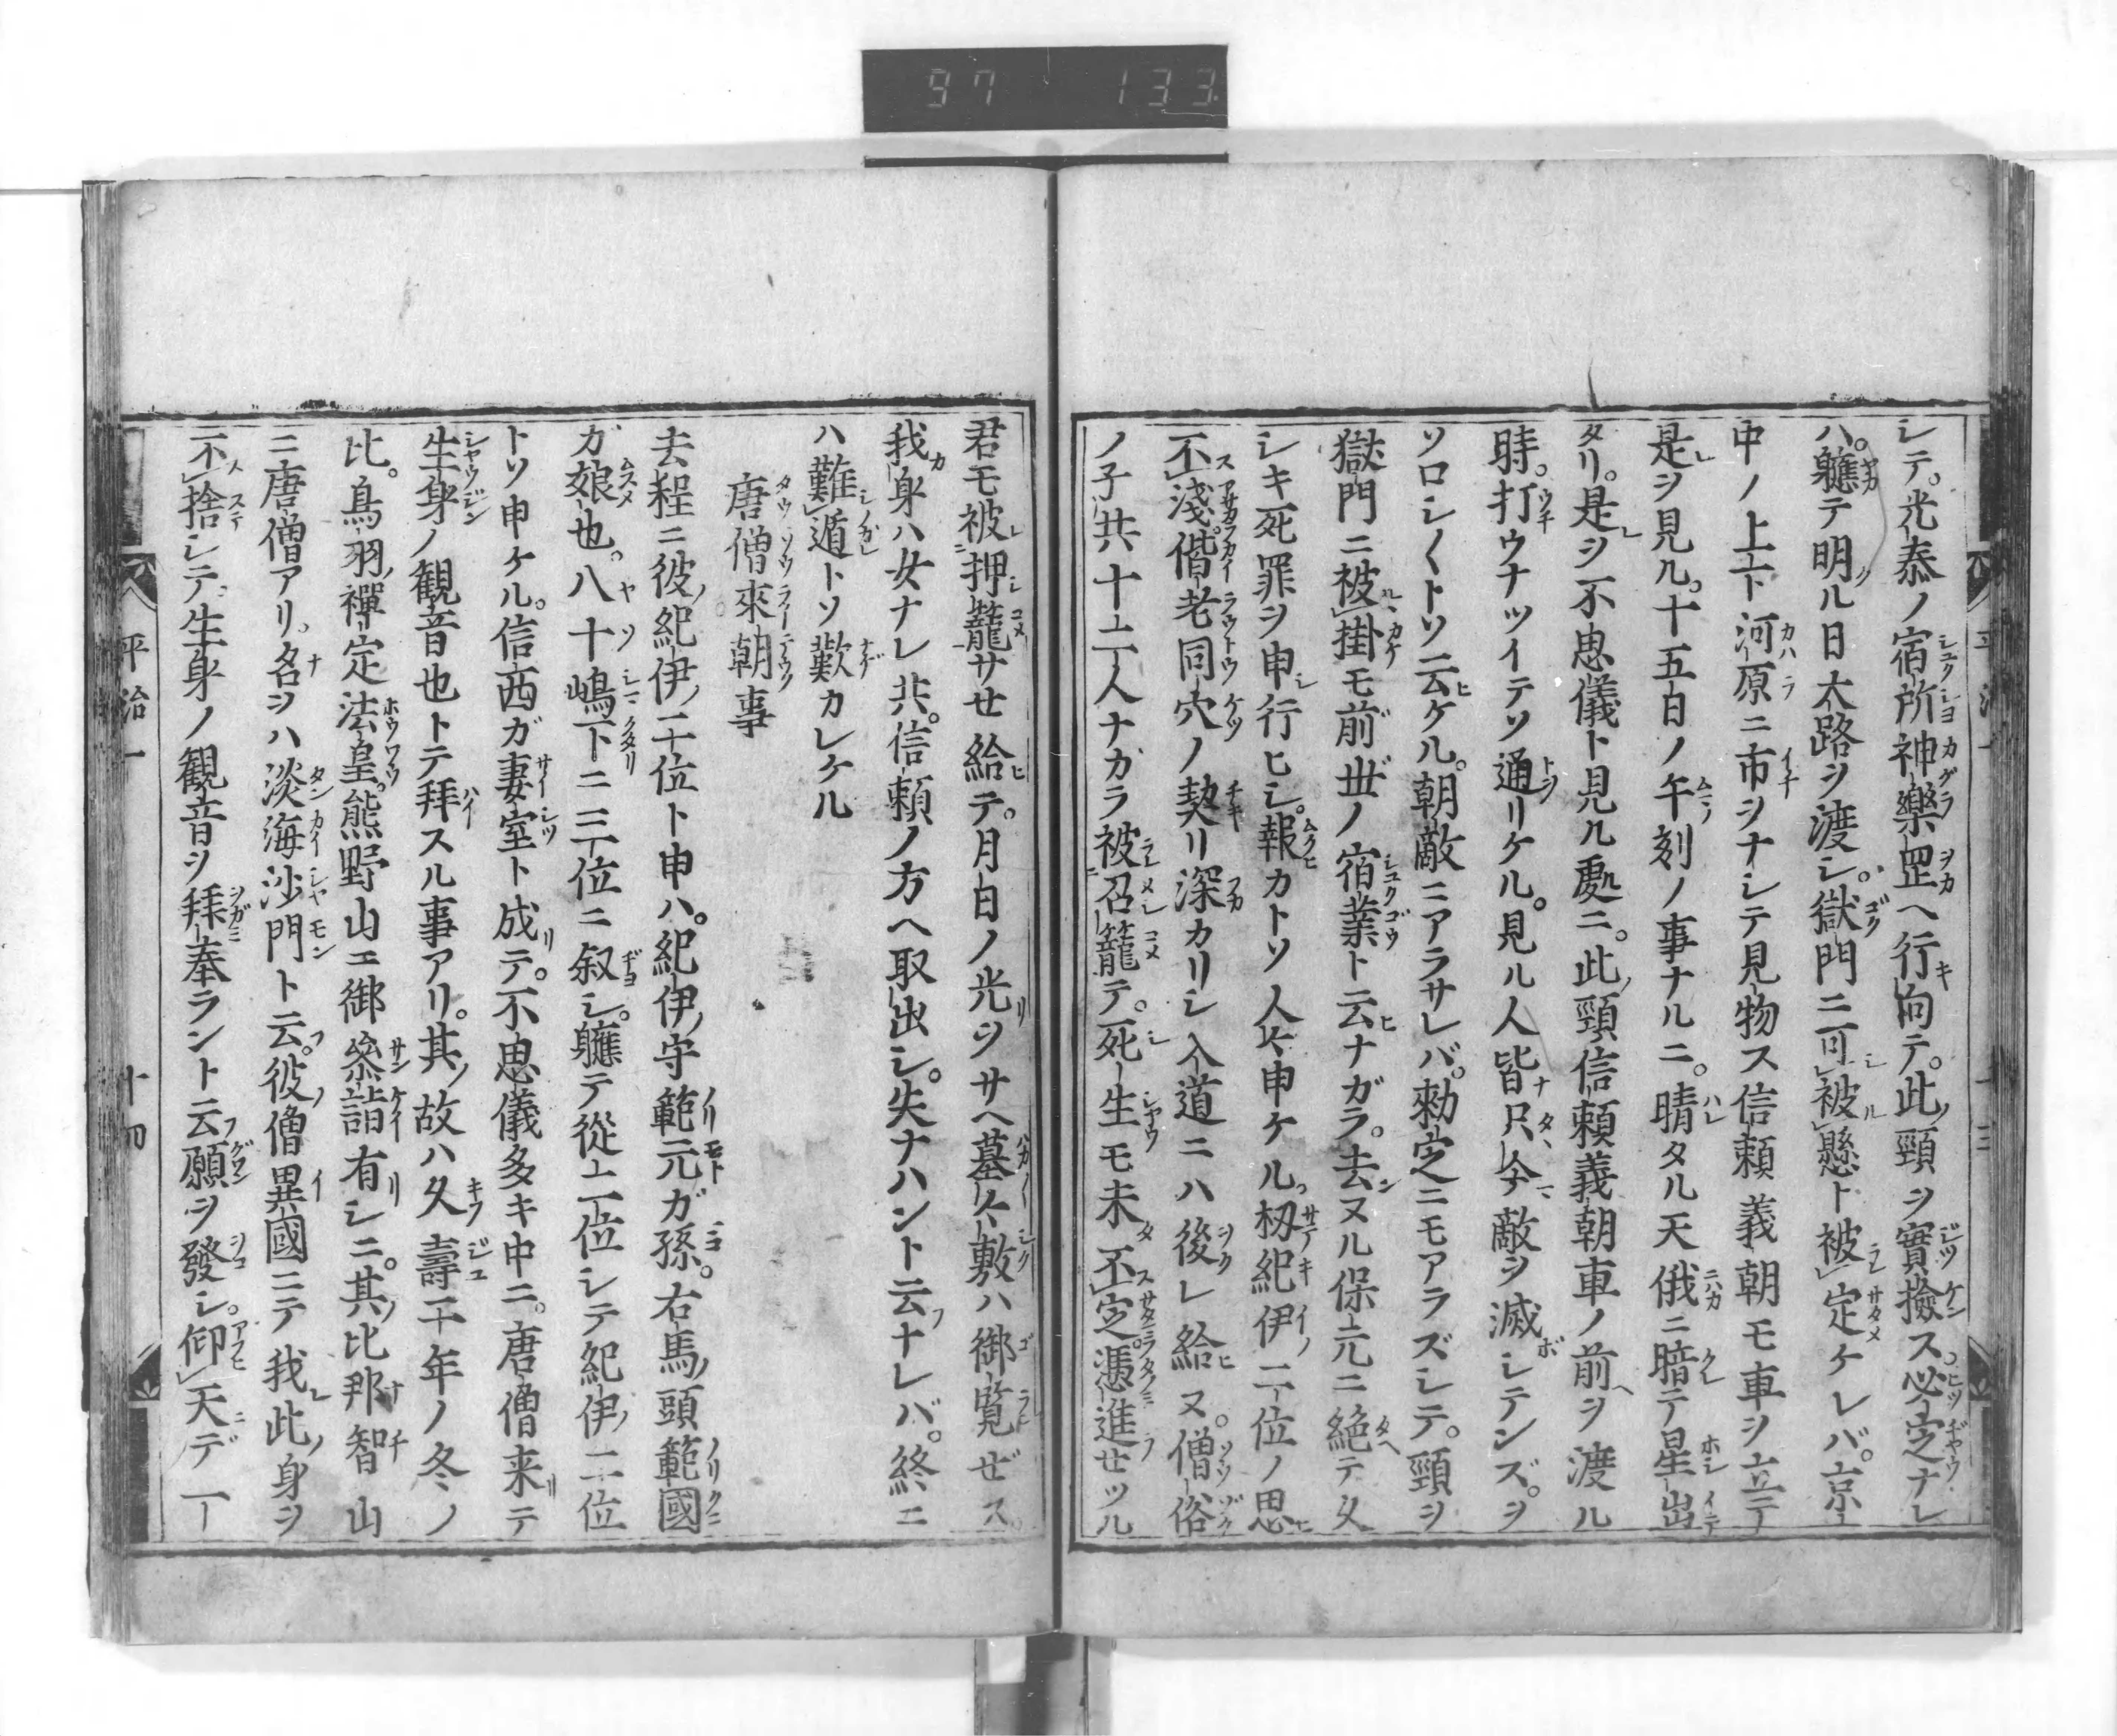 97 133
シテ。光泰ノ宿所神樂罡ヘ行向テ。此頸ヲ實撿ス。必定ナレ
ハ。軈テ明ル日大路ヲ渡シ。獄門ニ可被懸ト被定ケレバ。京
中ノ上下河原ニ市ヲナシテ見物ス信頼義朝モ車ヲ立テ
是ヲ見ル。十五日ノ午刻ノ事ナルニ。晴タル天俄ニ暗テ星出
タリ。是ヲ不思儀ト見ル處ニ。此頸信頼義朝車ノ前ヲ渡ル
時。打ウナツイテソ通リケル。見ル人皆只今敵ヲ滅シテンズ。ヲ
ソロシ〱トソ云ケル。朝敵ニアラサレバ。勅定ニモアラズシテ。頸ヲ
獄門ニ被掛モ前世ノ宿業ト云ナガラ。去ヌル保元ニ絶テ久
シキ死罪ヲ申行ヒシ。報カトソ人々申ケル。扨紀伊二位ノ思
不淺。偕老同穴ノ契リ深カリシ入道ニハ後レ給ヌ。僧俗
ノ子共十二人ナカラ被召籠テ。死生モ未不定。憑進セツル
平治一 十三
君モ被押籠サセ給テ。月日ノ光ヲサヘ墓々敷ハ御覧ゼス。
我身ハ女ナレ共。信頼ノ方ヘ取出シ。失ナハント云ナレバ。終ニ
ハ難遁トソ歎カレケル
唐僧來朝事
去程ニ彼紀伊二位ト申ハ。紀伊守範元ガ孫。右馬頭範國
ガ娘也。八十嶋下ニ三位ニ叙シ。軈テ從二位シテ紀伊二位
トソ申ケル。信西ガ妻室ト成テ。不思儀多キ中ニ。唐僧来テ
生身ノ観音也トテ拜スル事アリ。其故ハ久壽二年ノ冬ノ
比。鳥羽禪定法皇。熊野山エ御參詣有シニ。其比那智山
ニ唐僧アリ。名ヲハ淡海沙門ト云。彼僧異國ニテ我此身ヲ
不捨シテ生身ノ観音ヲ拜奉ラント云願ヲ發シ。仰天デ一
平治一 十四